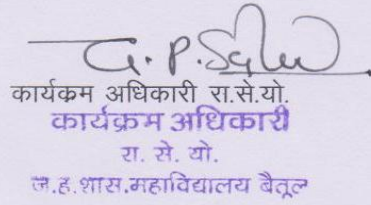 G. P. Sahu
कार्यक्रम अधिकारी रा.से.यो.
कार्यक्रम अधिकारी
रा. से. यो.
ज.ह.शास.महाविद्यालय बैतूल